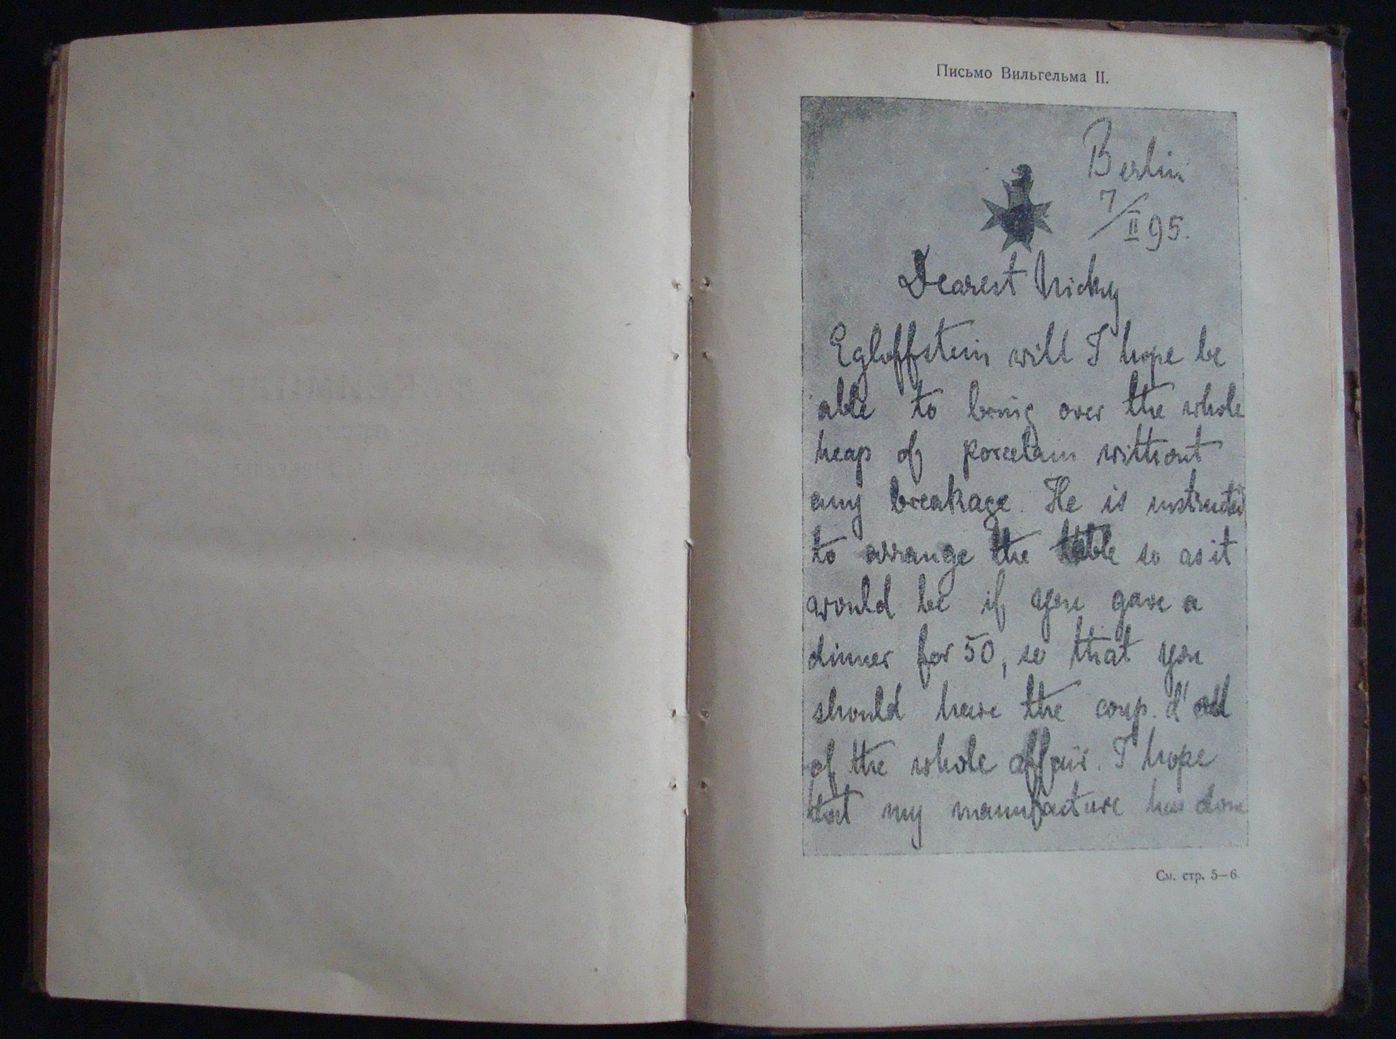 Письмо Вильгельма II.
Berlin
7/II 95.
Dearest Nicky
Egloffstein will I hope be
able to bring over the whole
heap of porcelain without
any breakage. He is instructed
to arrange the table so as it
would be if you gave a
dinner for 50, so that you
should have the coup d'œil
of the whole affair. I hope
that my manufacture has done
См. стр. 5—6